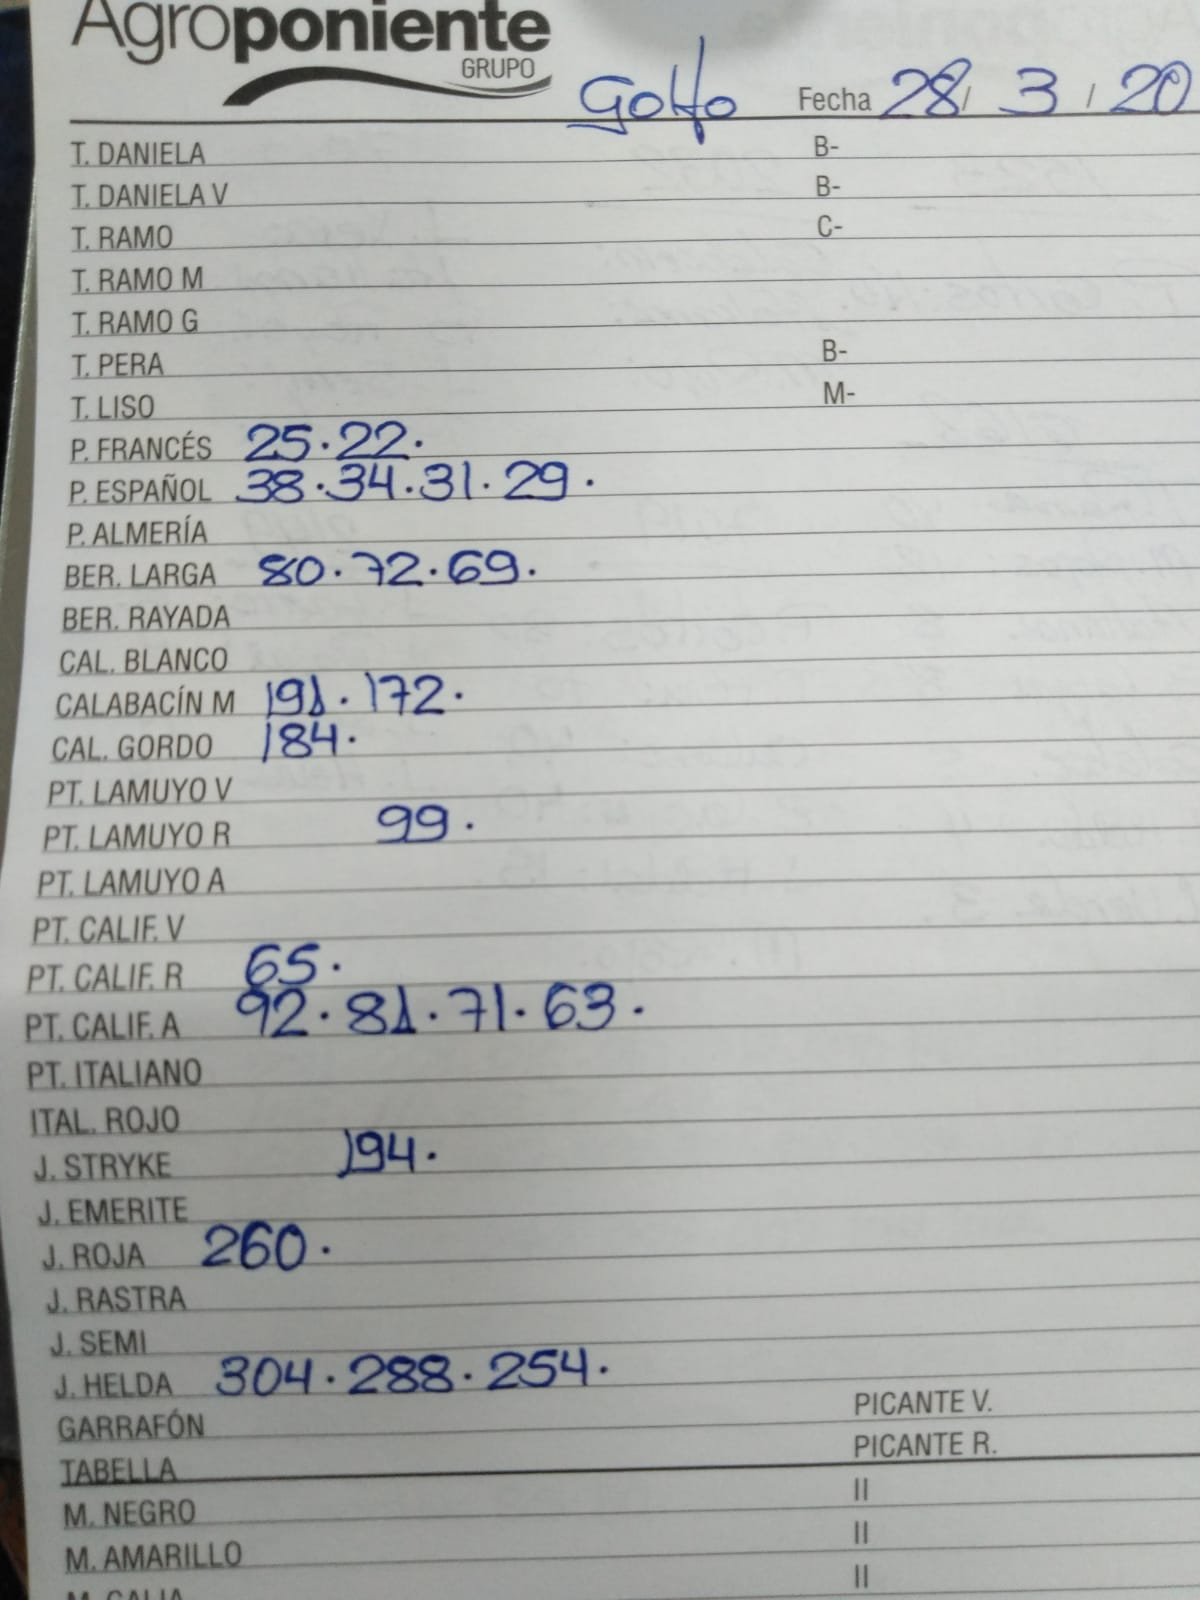 Agroponiente
GRUPO
Golfo Fecha 28/ 3 / 20
T. DANIELA B-
T. DANIELA V B-
T. RAMO C-
T. RAMO M
T. RAMO G
T. PERA B-
T. LISO M-
P. FRANCÉS 25.22.
P. ESPAÑOL 38.34.31.29.
P. ALMERÍA
BER. LARGA 80.72.69.
BER. RAYADA
CAL. BLANCO
CALABACÍN M 191.172.
CAL. GORDO 184.
PT. LAMUYO V
PT. LAMUYO R 99.
PT. LAMUYO A
PT. CALIF. V
PT. CALIF. R 65.
PT. CALIF. A 92.81.71.63.
PT. ITALIANO
ITAL. ROJO
J. STRYKE 194.
J. EMERITE
J. ROJA 260.
J. RASTRA
J. SEMI
J. HELDA 304.288.254.
GARRAFÓN PICANTE V.
TABELLA PICANTE R.
M. NEGRO II
M. AMARILLO II
M. GALIA II